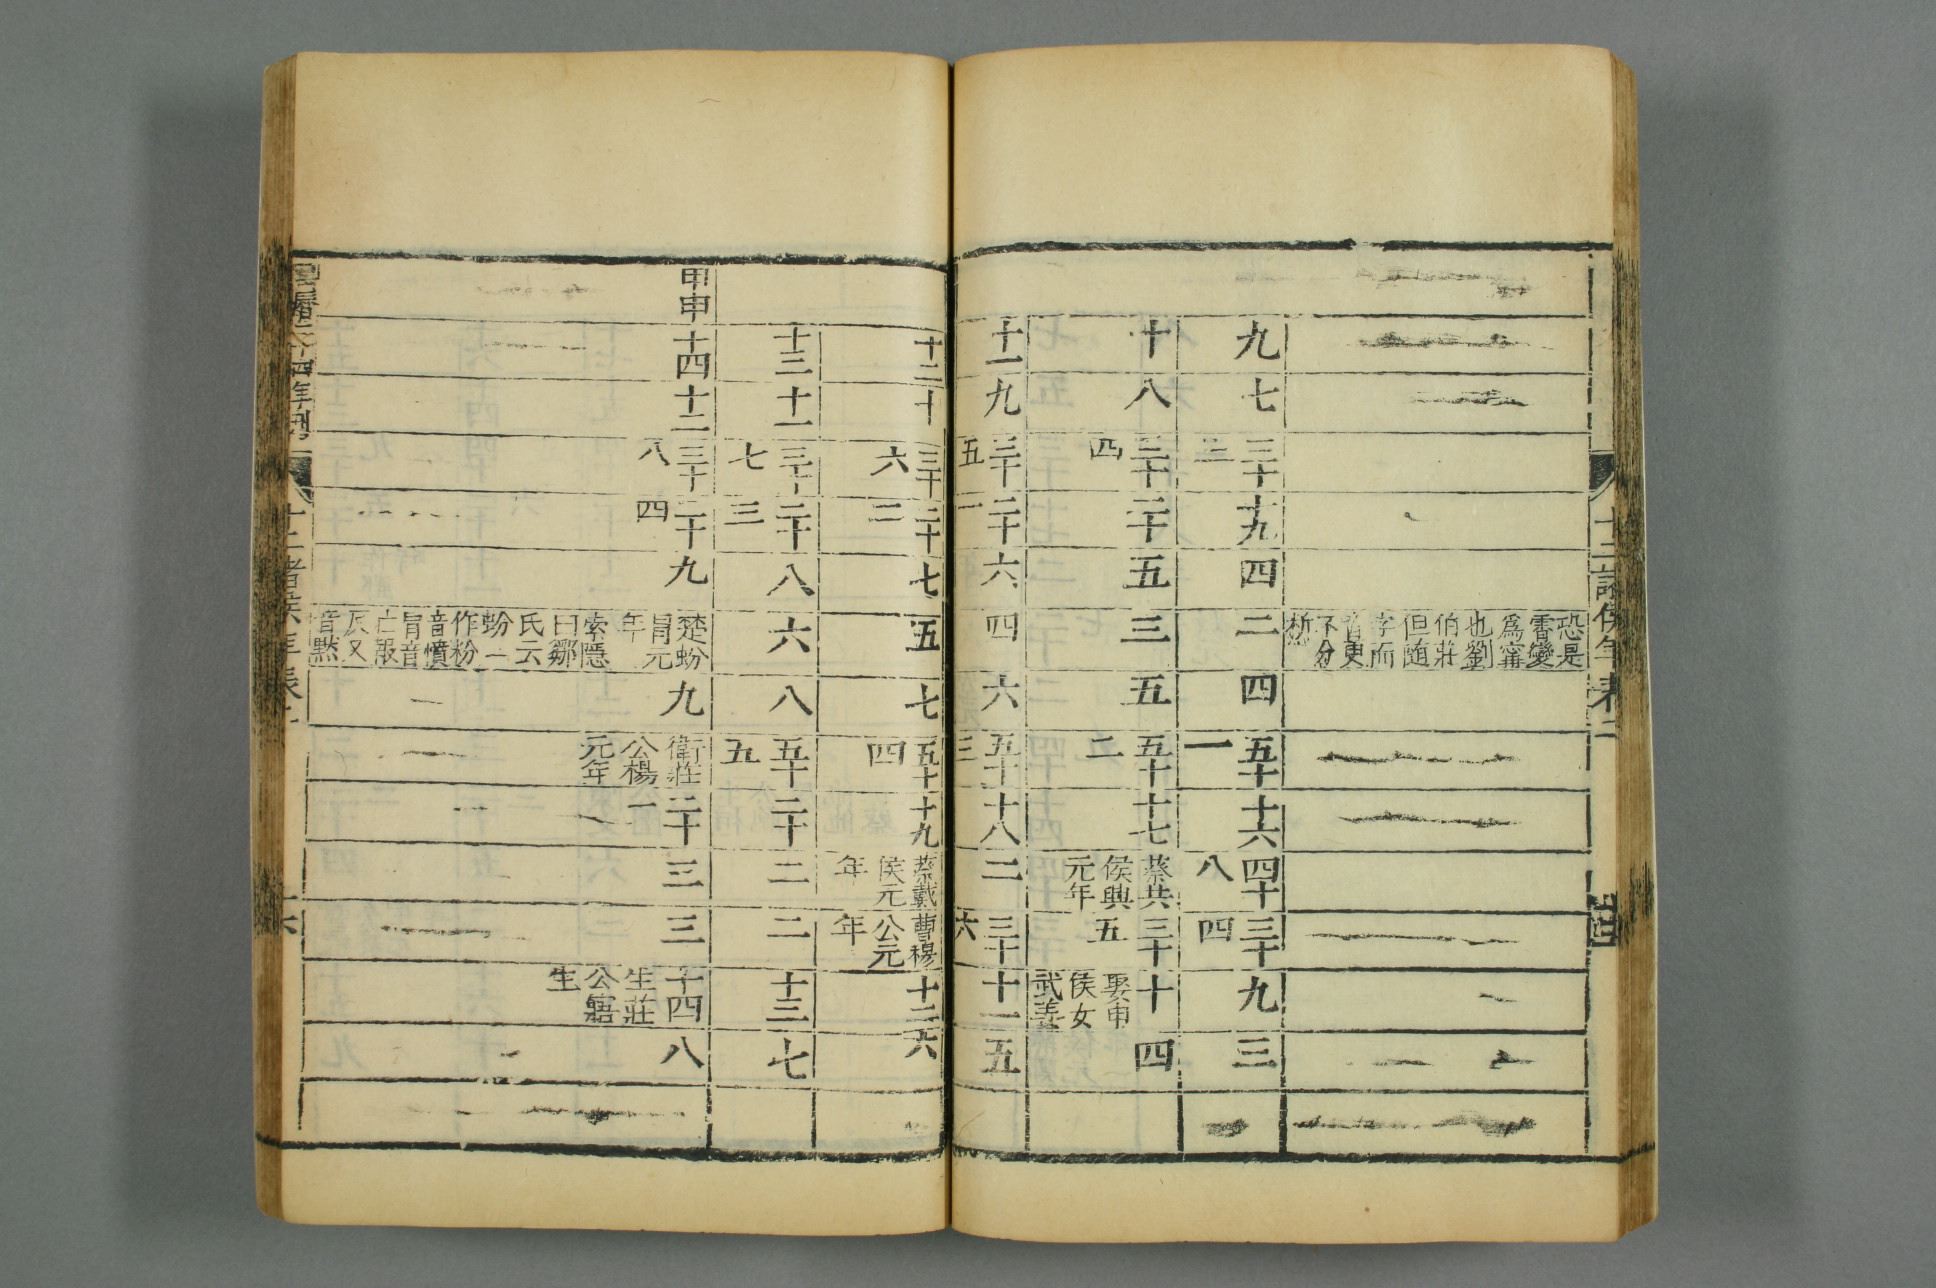 十二諸侯年表
恐是
霄變
爲甯
也劉
伯莊
但随
字而
音更
不分
析
九
七
三十三
十九
四
二
四
五十一
十六
四十八
三十四
九
三
十
八
三十四
二十
五
三
五
五十二
十七
蔡共
侯興
元年
三十五
十
娶申
侯女
武姜
四
十一
九
三十五
二十一
六
四
六
五十三
十八
二
三十六
十一
五
十二
十
三十六
二十二
七
五
七
五十四
十九
蔡戴
侯元
年
曹穆
公元
年
十二
六
十三
十一
三十七
二十三
八
六
八
五十五
二十
二
二
十三
七
甲申
十四
十二
三十八
二十四
九
楚蚡
冒元
年
索隱
曰鄒
氏云
蚡一
作粉
音憤
冒音
亡報
反又
音黙
九
衛莊
公楊
元年
二十一
三
三
十四
生莊
公寤
生
八
十四年刊
十二諸侯年表